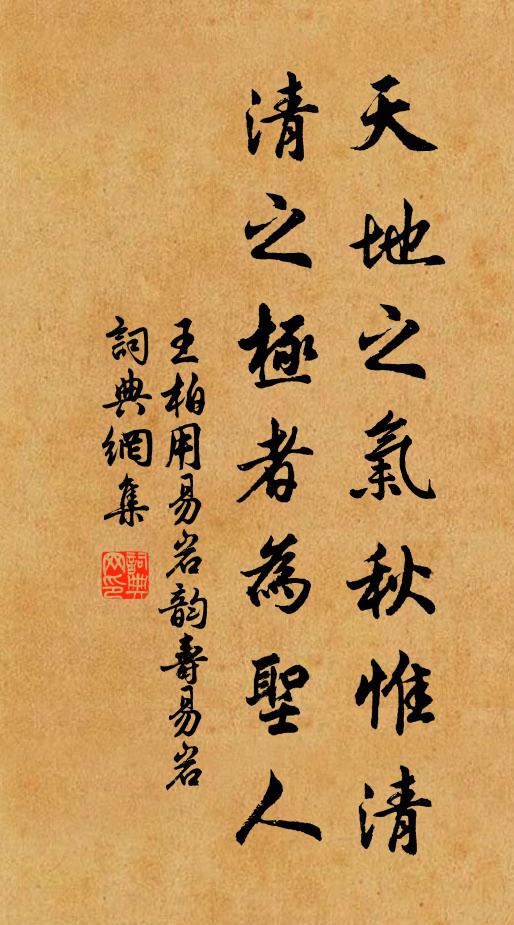 天地之氣秋惟清
清之極者為聖人
王柏用易岩韵壽易岩
詞典網集
詞典網印